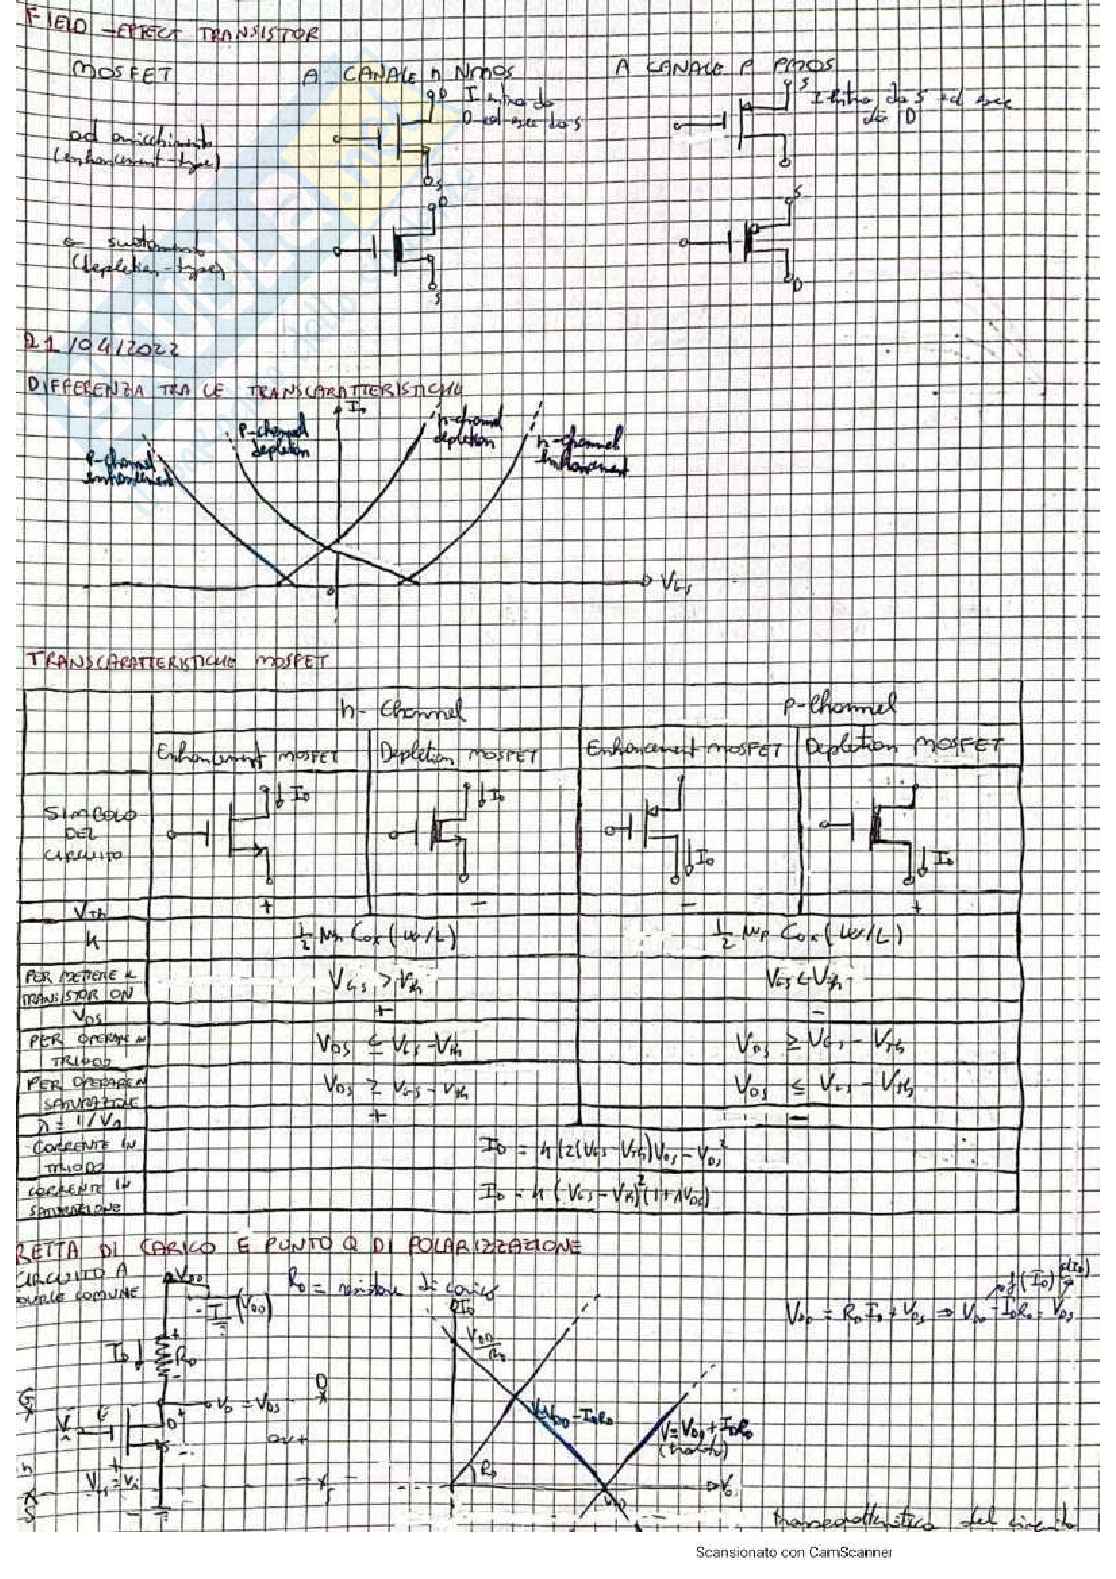 FIELD-EFFECT TRANSISTOR
MOSFET A CANALE n NMOS A CANALE P PMOS
D I entra da S I entra da S ed esce
D ed esce da S da D
ad arricchimento
(enhancement-type)
S
D S
a svuotamento
(depletion-type)
S D
21/04/2022
DIFFERENZA TRA LE TRANSCARATTERISTICHE
I_D
p-channel depletion
n-channel depletion
p-channel enhancement
n-channel enhancement
0
V_GS
TRANSCARATTERISTICHE MOSFET
n-Channel p-Channel
Enhancement MOSFET Depletion MOSFET Enhancement MOSFET Depletion MOSFET
SIMBOLO DEL CIRCUITO I_D I_D I_D I_D
V_Th + - - +
k 1/2 μn Cox (W/L) 1/2 μp Cox (W/L)
PER METTERE IL TRANSISTOR ON V_GS > V_Th V_GS < V_Th
V_DS + -
PER OPERARE IN TRIODO V_DS ≤ V_GS - V_Th V_DS ≥ V_GS - V_Th
PER OPERARE IN SATURAZIONE V_DS ≥ V_GS - V_Th V_DS ≤ V_GS - V_Th
λ = 1/V_A + -
CORRENTE IN TRIODO I_D = k(2(V_GS - V_Th)V_DS - V_DS²
CORRENTE IN SATURAZIONE I_D = k(V_GS - V_Th)²(1+λV_DS)
RETTA DI CARICO E PUNTO Q DI POLARIZZAZIONE
CIRCUITO A
COMUNE
V_DD (V_DD)
R_D = resistore di carico
f(I_D)
V_DD = R_D I_D + V_DS ⇒ V_DD - I_D R_D = V_DS
I_D
V_DD/R_D
I_D R_D
V_D = V_DS
D
V=V_DD - I_D R_D
V=V_DD + I_D R_D
G
D
S
V_GS = Vi
R_D
V_DD
transcaratteristica del circuito
Scansionato con CamScanner